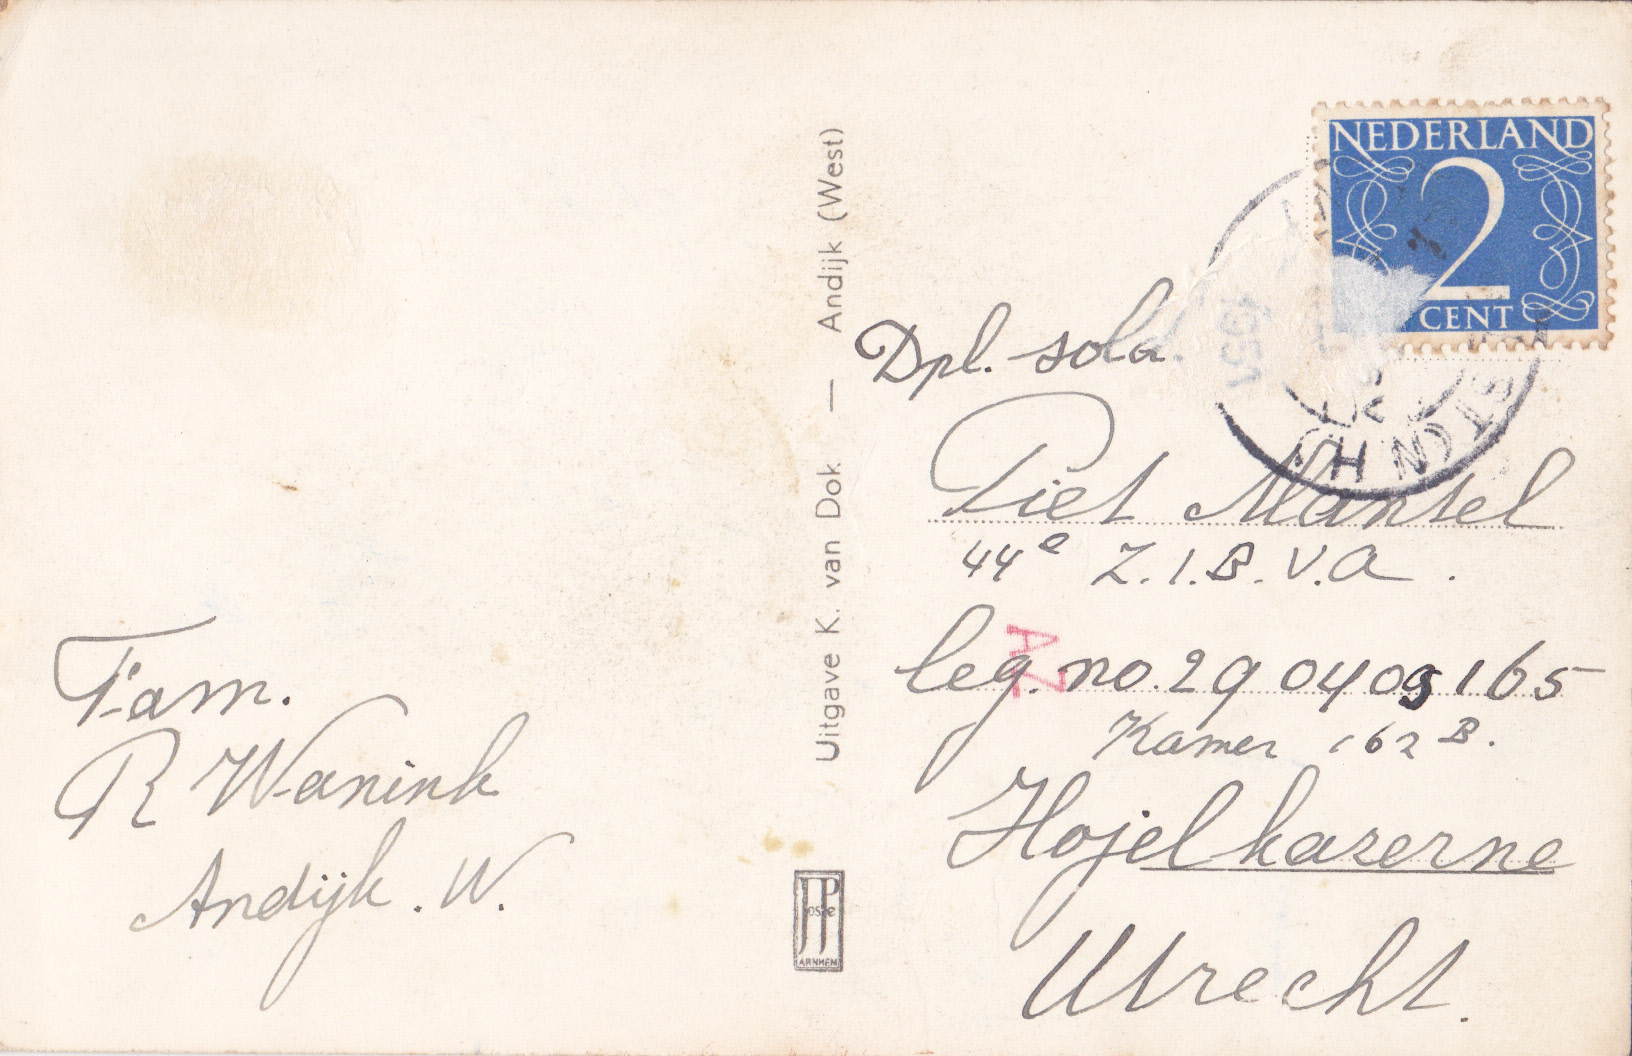 Fam.
R Wanink
Andijk. W.
Uitgave K. van Dok — Andijk (West)
JP
Josπe
ARNHEM
NEDERLAND
2
CENT
Dpl. sold
Piet Mantel
44e Z.I.B.V.A.
leg. no. 29 04 09 165
AZ
Kamer 162 B.
Hojelkazerne
Utrecht.